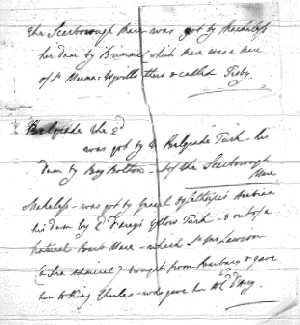 The Scarborough Mare was got by Makeless
her dam by Brimmer which Mare was a Mare
of Sr
there & called Tisby.
Belgrade the 2d
was got by ye Belgrade Turk his
dam by Bay Bolton of the Scarborough
Mare
Makeless was got by General Oglethorpe's Arabian
his dam by Ld D'arcy's Yellow Turk & out of a
natural Barb Mare which Sr Jno Lawson
(an Admiral) brought from Barbary & gave
her to King Charles who gave her to Ld D'Arcy.